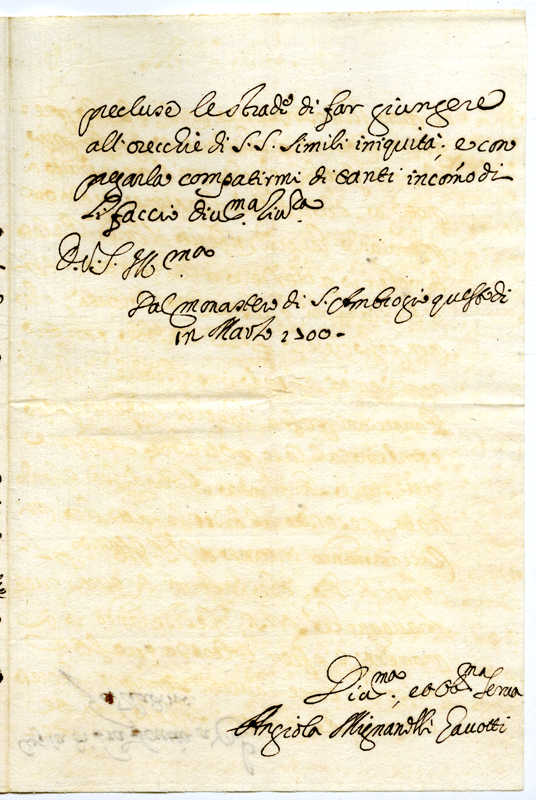 precluse le strade di far giungere
all'orecchie di S.S. simili iniquità, e con
pregarla compatirmi di tanti incomodi
li faccio div.ma riv.za
D.V.S. Ill.ma
Dal monastero di S. Ambrogio questo di
in Marzo 1700.
Dia.ma, et Obb.ma Serva
Angiola Mignanelli Gavotti